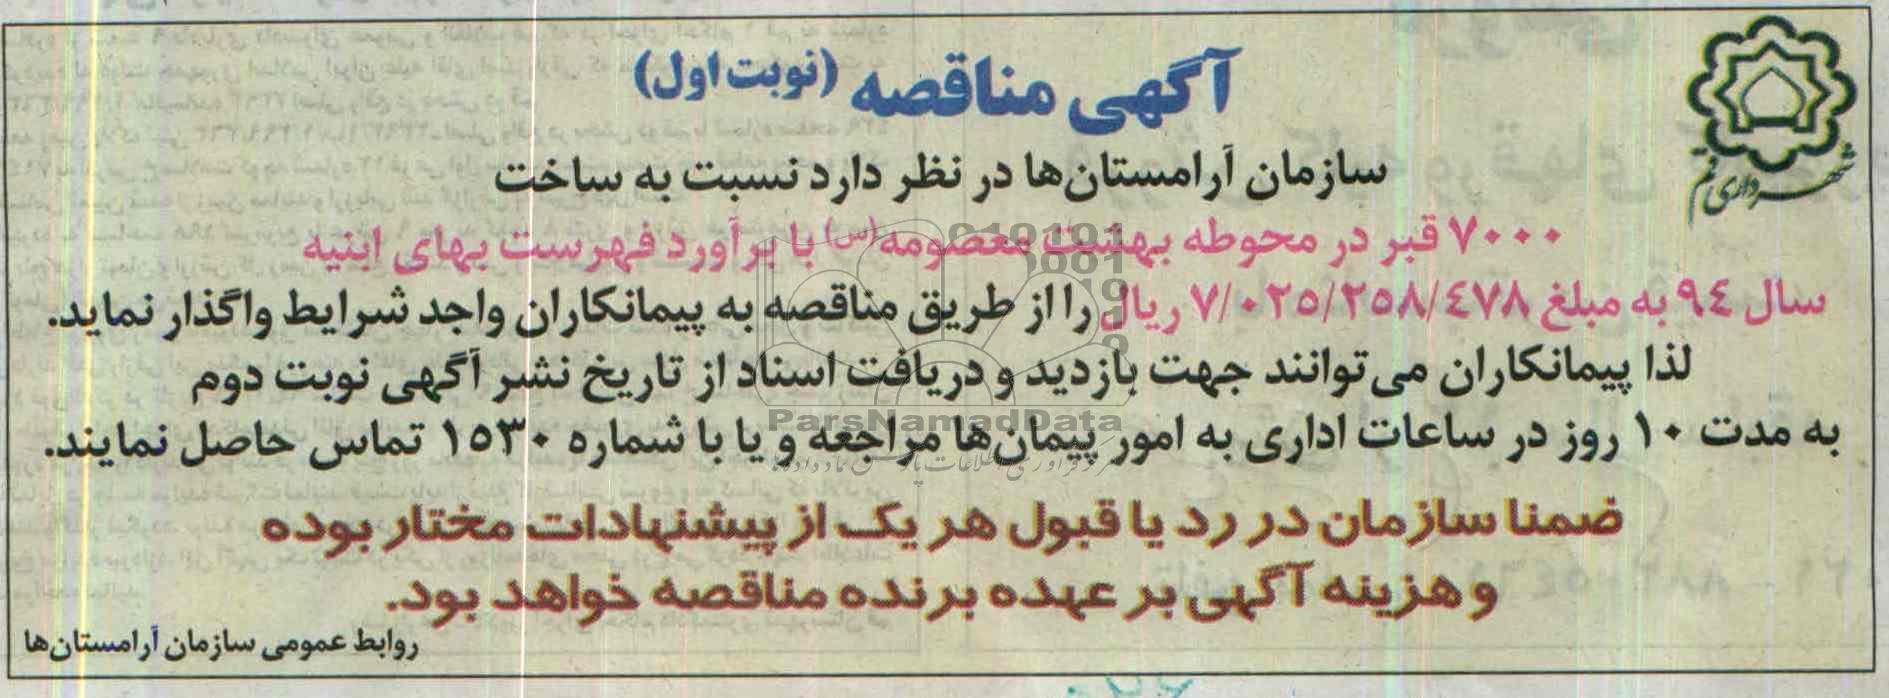 آگهی مناقصه (نوبت اول)
شهرداری قم
سازمان آرامستان‌ها در نظر دارد نسبت به ساخت
۷۰۰۰ قبر در محوطه بهشت معصومه(س) با برآورد فهرست بهای ابنیه
سال ۹۴ به مبلغ ۷/۰۲۵/۲۵۸/۴۷۸ ریال را از طریق مناقصه به پیمانکاران واجد شرایط واگذار نماید.
لذا پیمانکاران می‌توانند جهت بازدید و دریافت اسناد از تاریخ نشر آگهی نوبت دوم
به مدت ۱۰ روز در ساعات اداری به امور پیمان‌ها مراجعه و یا با شماره ۱۵۳۰ تماس حاصل نمایند.
ParsNamadData
ضمنا سازمان در رد یا قبول هر یک از پیشنهادات مختار بوده
و هزینه آگهی بر عهده برنده مناقصه خواهد بود.
روابط عمومی سازمان آرامستان‌ها